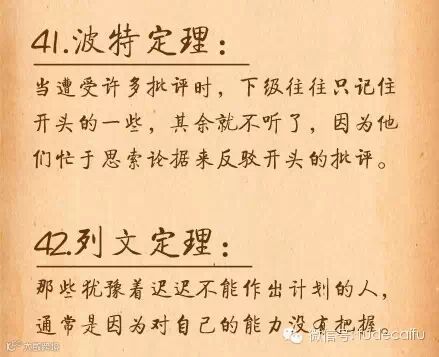 41.波特定理：
当遭受许多批评时，下级往往只记住
开头的一些，其余就不听了，因为他
们忙于思索论据来反驳开头的批评。
42.列文定理：
那些犹豫着迟迟不能作出计划的人，
通常是因为对自己的能力没有把握。
微信号：fudecaifu